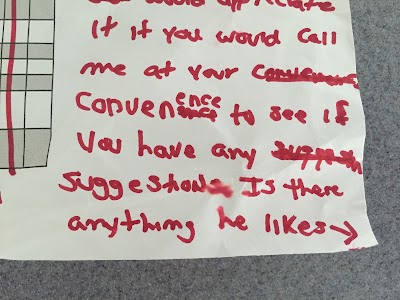 would appreciate
It if you would call
me at your
convenence to see if
you have any
suggestions Is there
anything he likes→